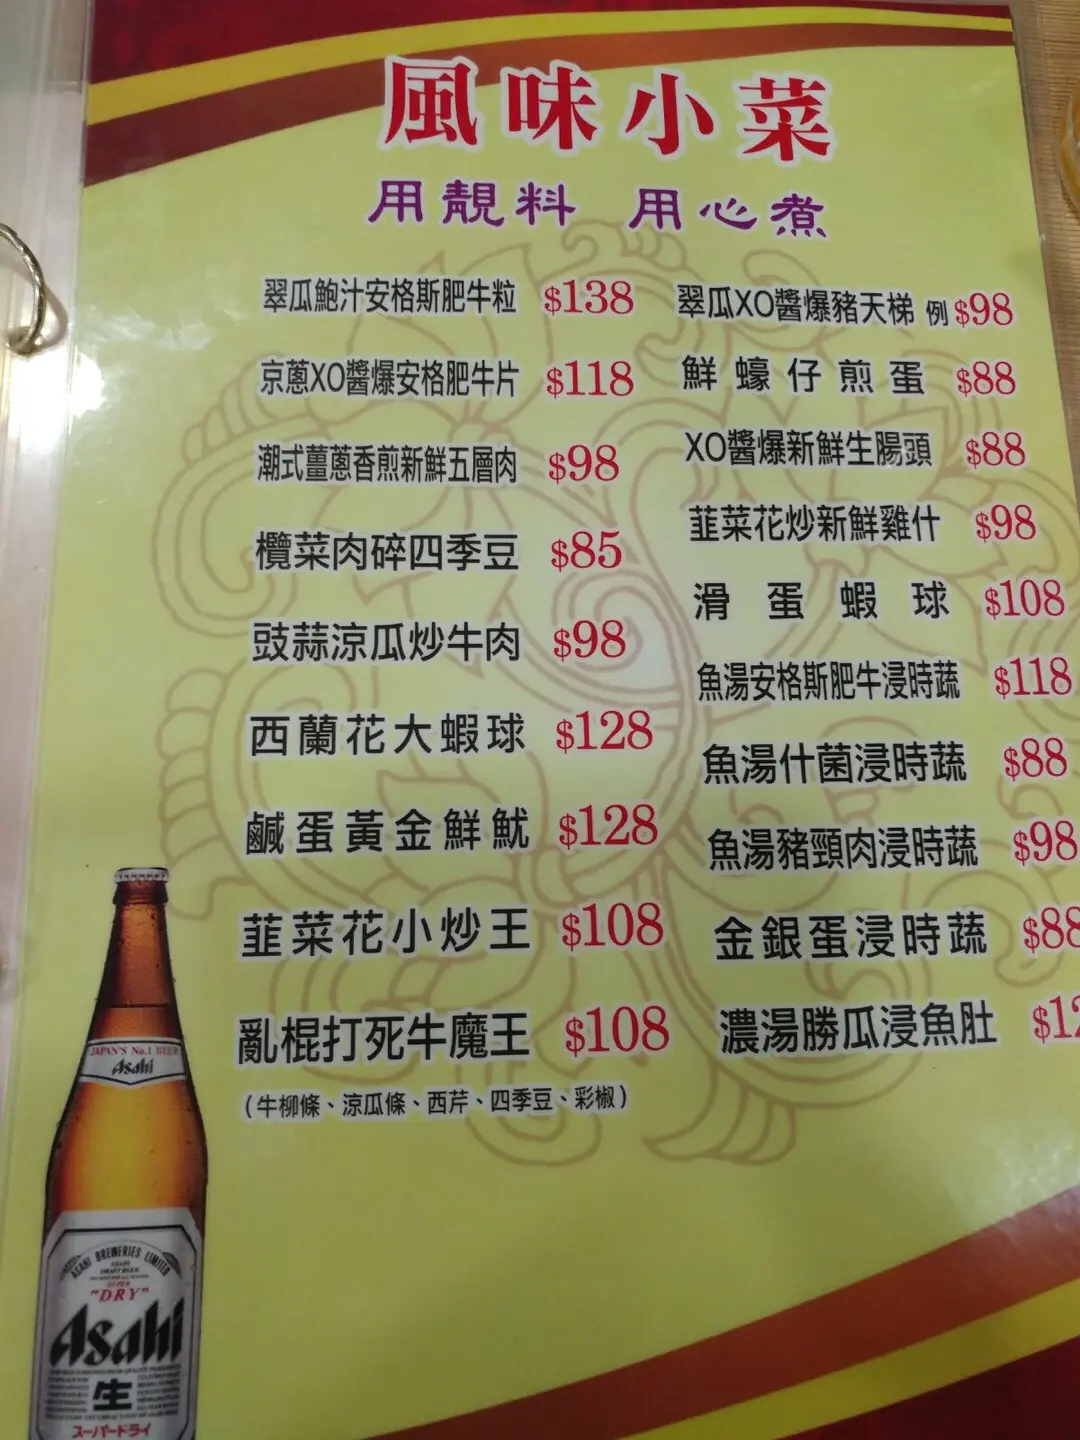 風味小菜
用靚料 用心煮
翠瓜鮑汁安格斯肥牛粒 $138
京蔥XO醬爆安格肥牛片 $118
潮式薑蔥香煎新鮮五層肉 $98
欖菜肉碎四季豆 $85
豉蒜涼瓜炒牛肉 $98
西蘭花大蝦球 $128
鹹蛋黃金鮮魷 $128
韮菜花小炒王 $108
亂棍打死牛魔王 $108
(牛柳條、涼瓜條、西芹、四季豆、彩椒)
翠瓜XO醬爆豬天梯 例 $98
鮮蠔仔煎蛋 $88
XO醬爆新鮮生腸頭 $88
韮菜花炒新鮮雞什 $98
滑蛋蝦球 $108
魚湯安格斯肥牛浸時蔬 $118
魚湯什菌浸時蔬 $88
魚湯豬頸肉浸時蔬 $98
金銀蛋浸時蔬 $88
濃湯勝瓜浸魚肚 $12
JAPAN'S No.1 BEER
Asahi
ASAHI BREWERIES LIMITED
ASAHI
DRAFT BEER
SUPER
"DRY"
Asahi
生
スーパードライ